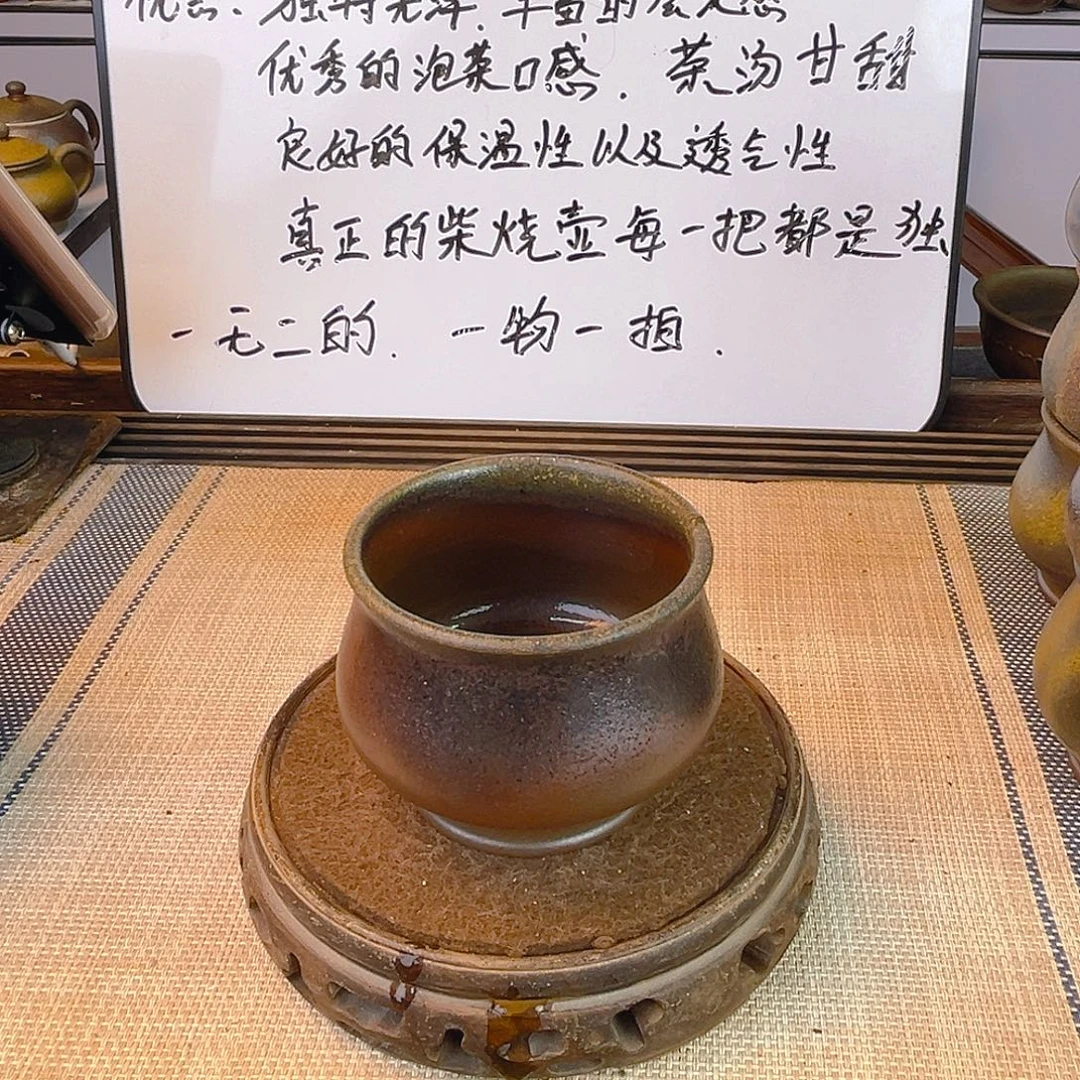 优秀的泡茶口感. 茶汤甘甜
良好的保温性以及透气性
真正的柴烧壶每一把都是独
一无二的. 一物一拍.